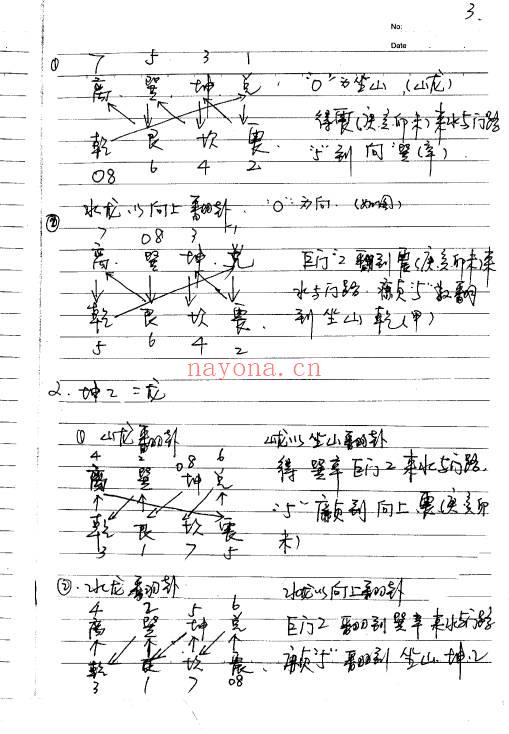 3.
No:
Date
① 7 5 3 1
离 巽 坤 兑 "0"为坐山 (山龙)
得震(庚亥卯未)来水与门路
乾 艮 坎 震 "5"到向巽(辛)
08 6 4 2
水龙以向上翻卦 "0"为向 (如图)
② 7 08 3 1
离 巽 坤 兑 巨门2翻到震(庚亥卯未)来
水与门路. 廉贞"5"数翻
乾 艮 坎 震 到坐山乾(甲)
5 6 4 2
nayona.cn
2. 坤乙=龙
① 山龙翻卦 山龙以坐山翻卦
4 2 08 6
离 巽 坤 兑 得巽辛巨门2来水与门路
"5"廉贞到向上震(庚亥卯
乾 艮 坎 震 未)
3 1 7 5
②.水龙翻卦 水龙以向上翻卦
4 2 5 6
离 巽 坤 兑 巨门2翻到巽辛来水与门路
乾 艮 坎 震 廉贞"5"翻到坐山坤.乙
3 1 7 08